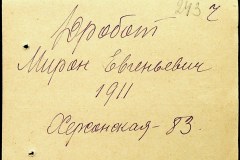 243 ч
Дробот
Мирон Евгеньевич
1911
Херсонская - 83